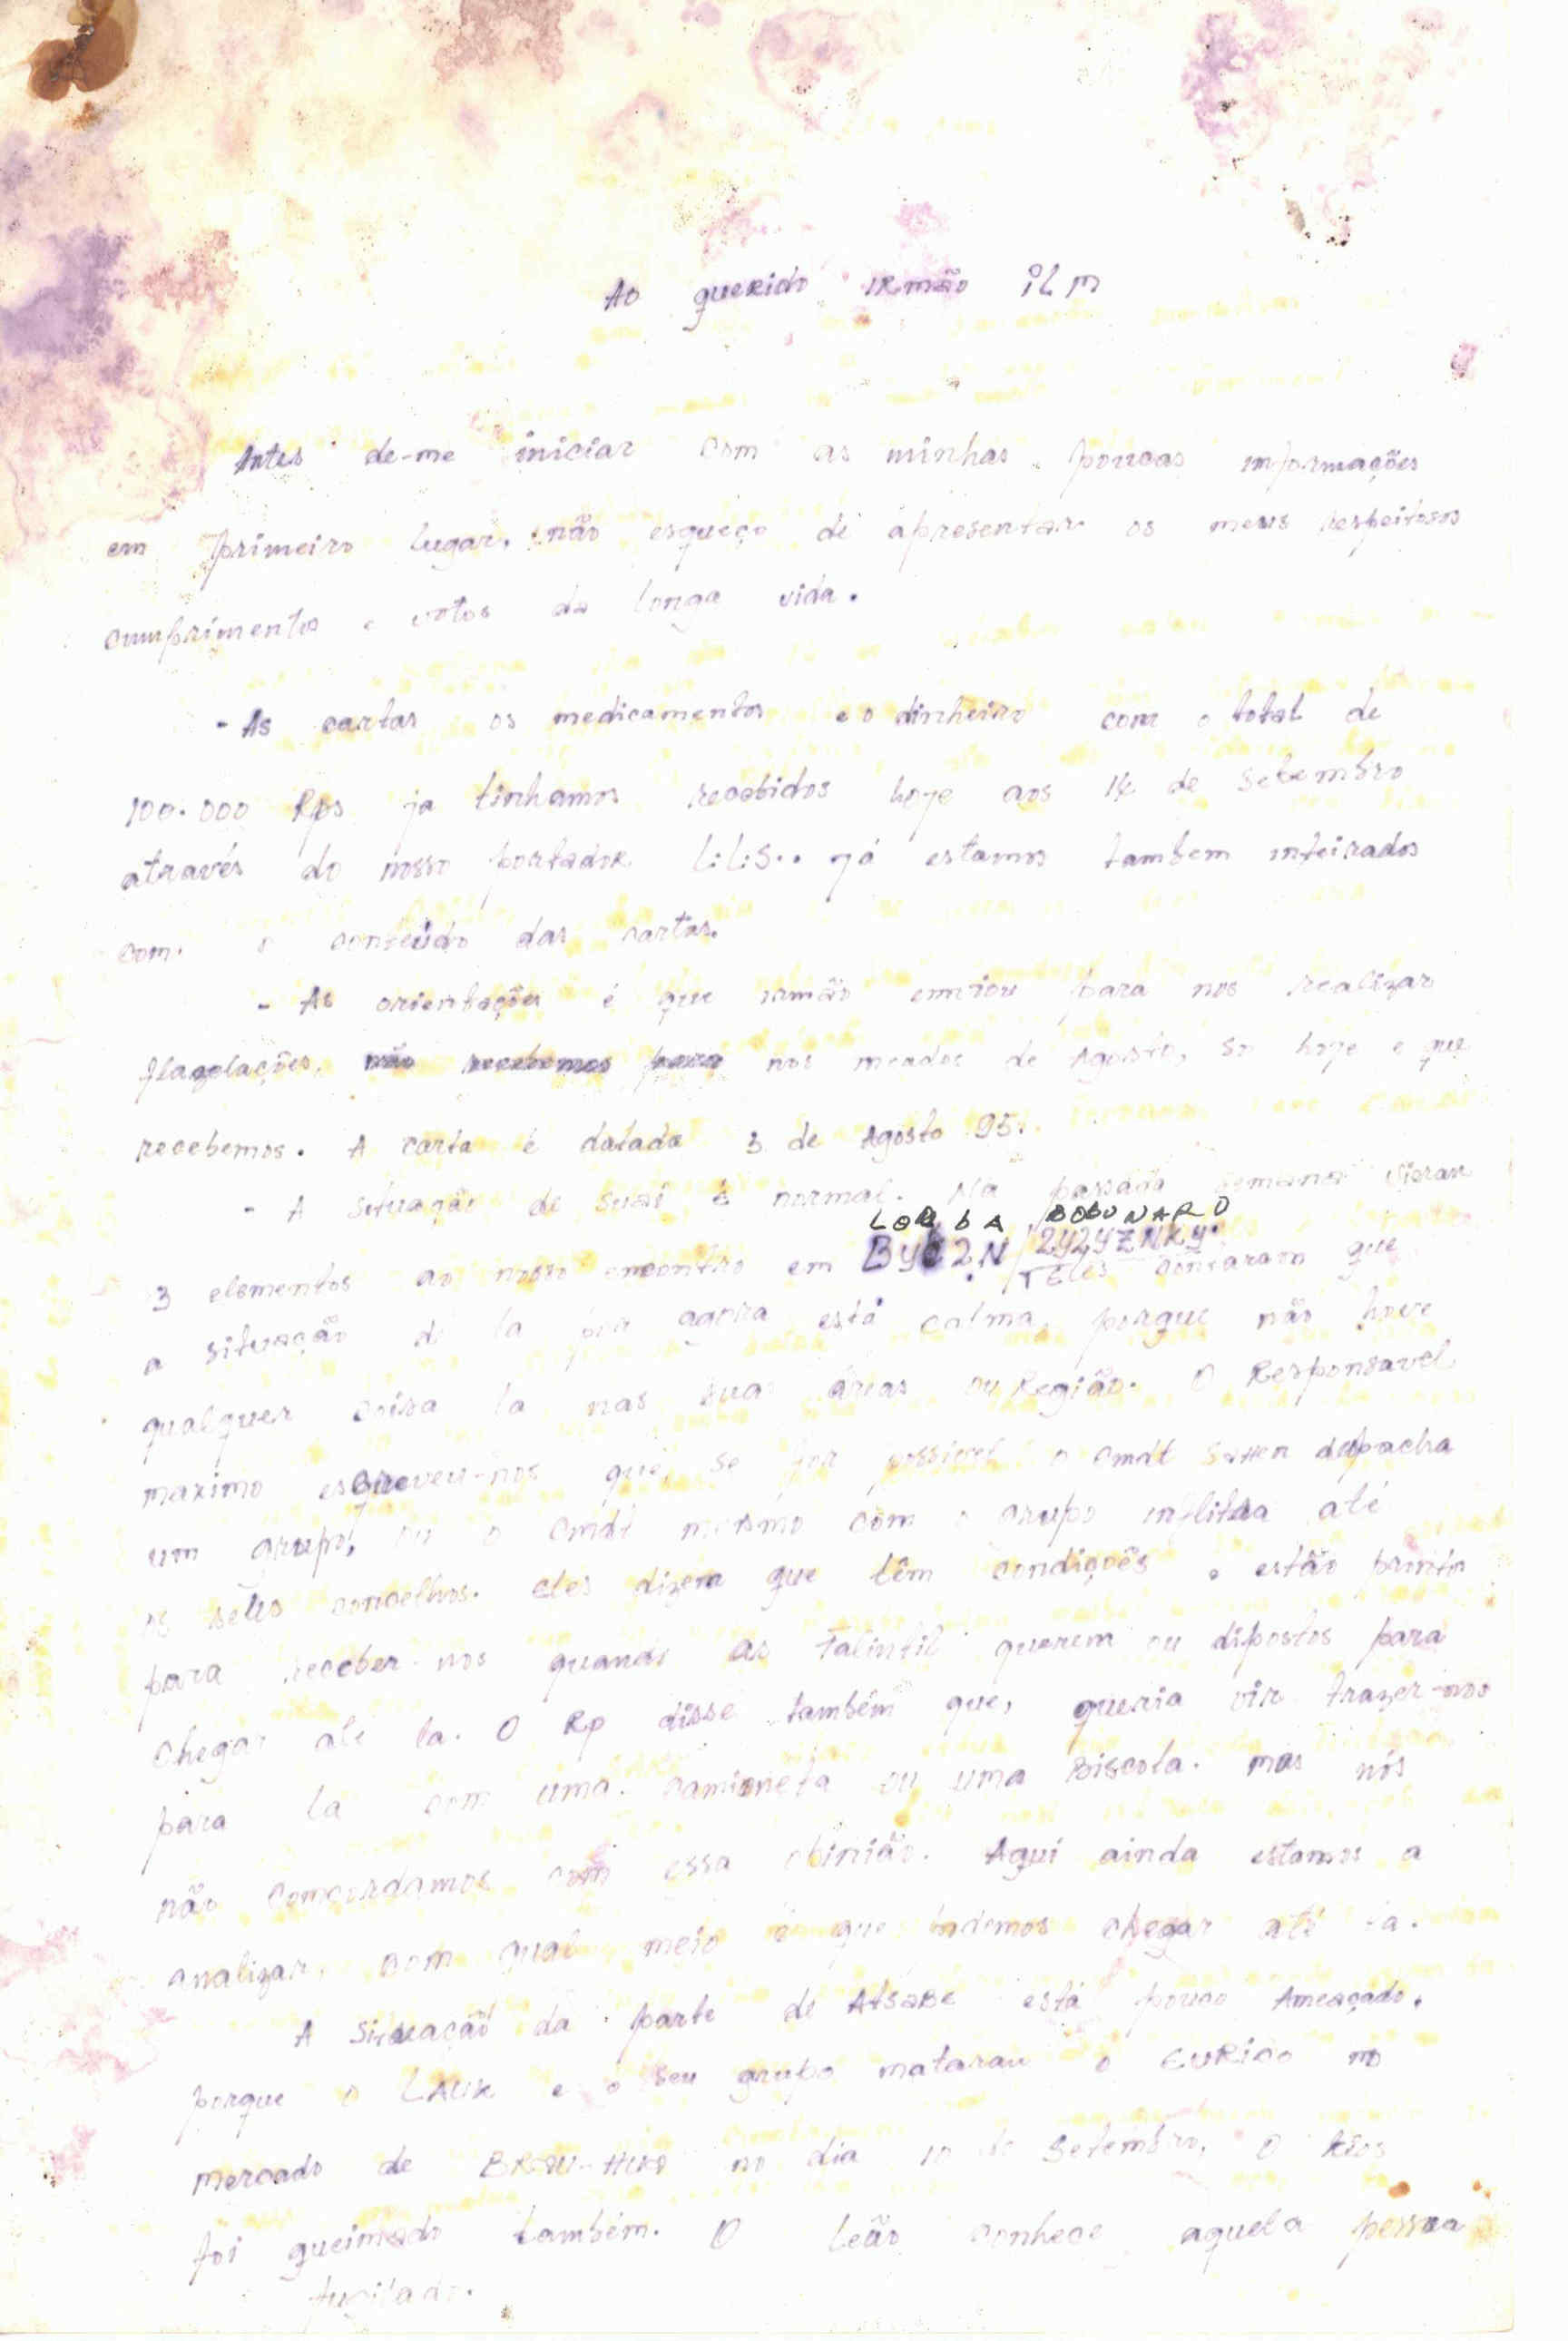 Ao querido IRmão ILM
Antes de-me iniciar com as minhas poucas informações
em primeiro lugar, não esqueço de apresentar os meus respeitosos
cumprimentos e votos de longa vida.
- As cartas os medicamentos e o dinheiro com o total de
100.000 Rps ja tinhamos recebidos hoje aos 14 de Setembro
através do nosso portador L.L.S.. já estamos tambem inteirados
com o conteúdo das cartas.
- As orientações é que irmão enviou para nos realizar
flagelações, não recebemos para nos meados de Agosto, so hoje e que
recebemos. A carta é datada 3 de Agosto 95.
- A situação de Suai é normal. Na passada semana vieram
LOLBA BOBONARO
3 elementos ao nosso encontro em BYC2N/2Y2YZNKY.
TELES contaram que
a situação de la por agora está calma, porque não hove
qualquer coisa la nas suas áreas ou Região. O Responsavel
maximo escreveu-nos que, se for possivel o Cmdt despacha
um grupo, ou o Cmdt mesmo com o grupo inflitra até
os seus concelhos. eles dizem que têm condições e estão pronto
para receber-nos quando as Falintil querem ou dipostos para
chegar até la. O Rp disse também que, queria vir trazer-nos
para la com uma camioneta ou uma Biscota. mas nós
não concordamos com essa obinião. Aqui ainda estamos a
analizar, com qual meio é que podemos chegar até la.
A Situação da parte de AtsaBe está pouco Ameaçado.
porque o LAUK e o seu grupo mataram o EURICO no
mercado de no dia 10 de Setembro. O
foi queimado também. O Leão conhece aquela pessoa
fuzilado.